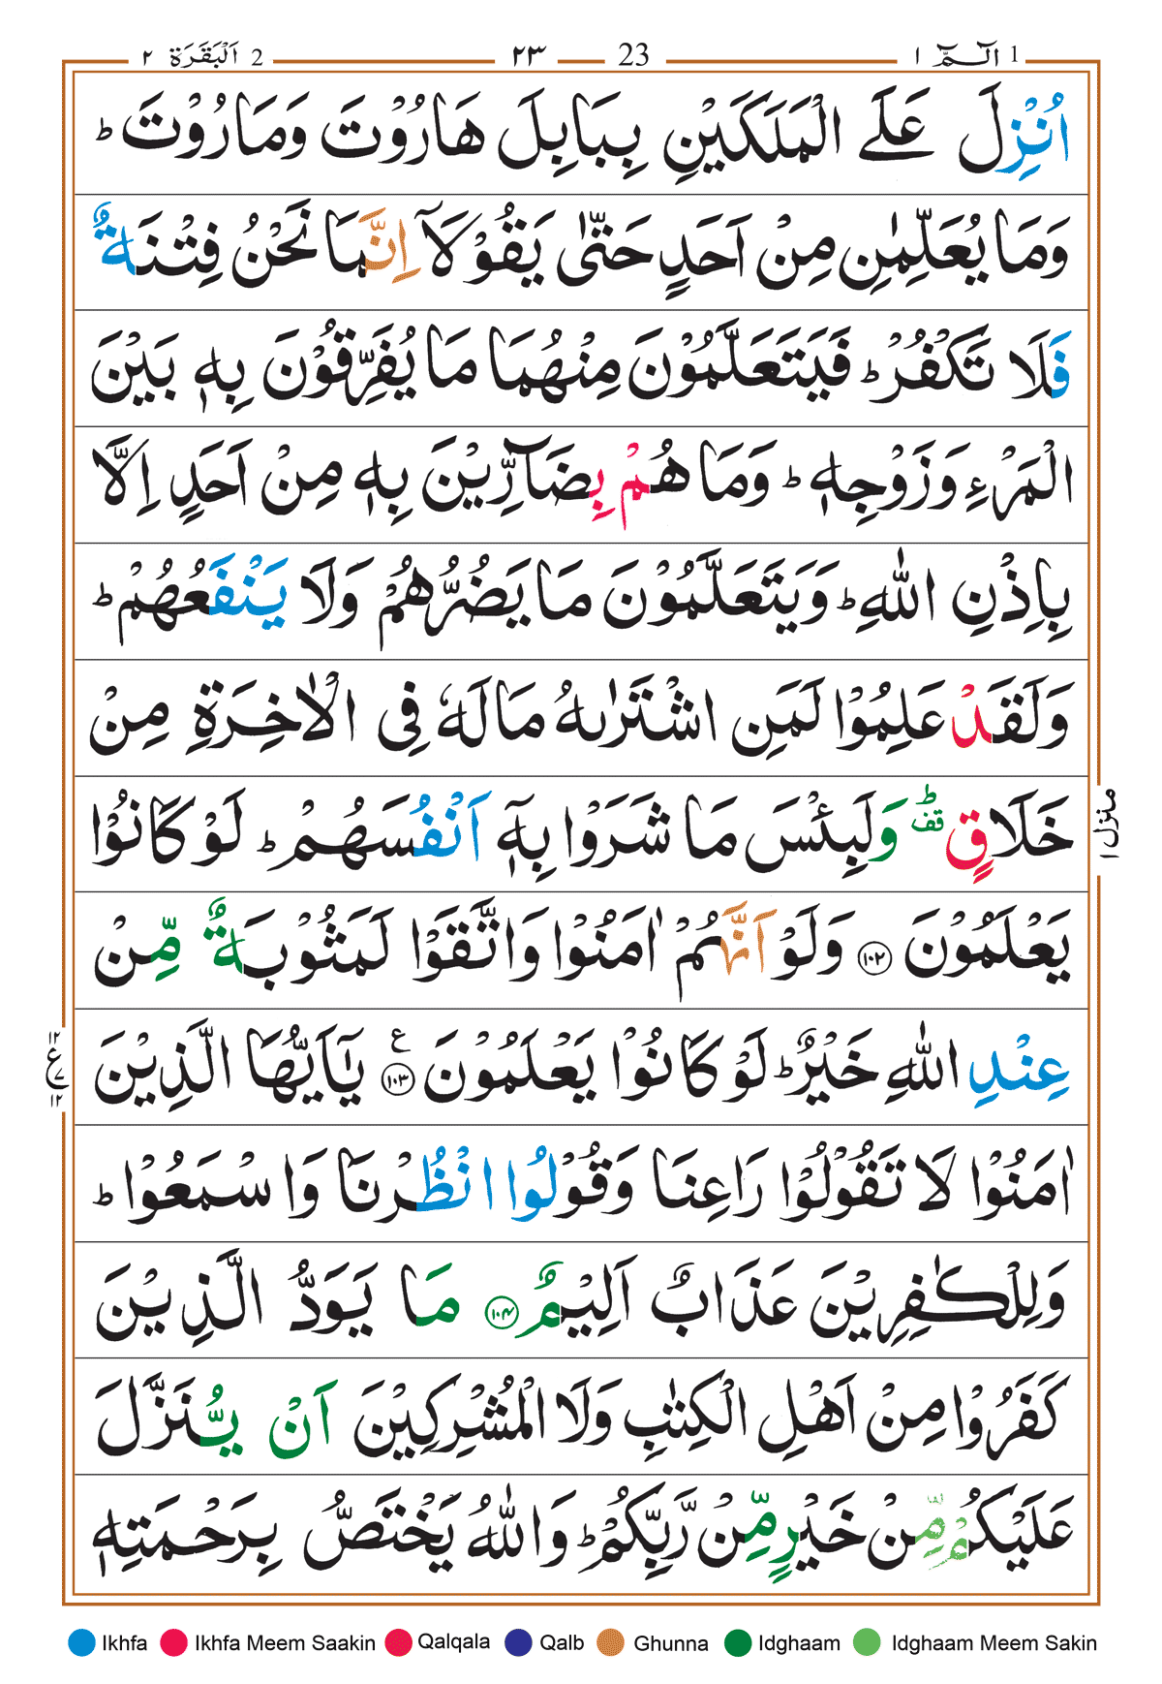 2 اَلْبَقَرَة ٢
٢٣ 23
1 الٓمّٓ ١
اُنْزِلَ عَلَى الْمَلَكَيْنِ بِبَابِلَ هَارُوْتَ وَمَارُوْتَ ؕ
وَمَا يُعَلِّمٰنِ مِنْ اَحَدٍ حَتّٰى يَقُوْلَاۤ اِنَّمَا نَحْنُ فِتْنَةٌ
فَلَا تَكْفُرْ ؕ فَيَتَعَلَّمُوْنَ مِنْهُمَا مَا يُفَرِّقُوْنَ بِهٖ بَيْنَ
الْمَرْءِ وَزَوْجِهٖ ؕ وَمَا هُمْ بِضَآرِّيْنَ بِهٖ مِنْ اَحَدٍ اِلَّا
بِاِذْنِ اللّٰهِ ؕ وَيَتَعَلَّمُوْنَ مَا يَضُرُّهُمْ وَلَا يَنْفَعُهُمْ ؕ
وَلَقَدْ عَلِمُوْا لَمَنِ اشْتَرٰىهُ مَا لَهٗ فِى الْاٰخِرَةِ مِنْ
خَلَاقٍ ؕ قف وَلَبِئْسَ مَا شَرَوْا بِهٖۤ اَنْفُسَهُمْ ؕ لَوْ كَانُوْا
يَعْلَمُوْنَ ﴿۱۰۲﴾ وَلَوْ اَنَّهُمْ اٰمَنُوْا وَاتَّقَوْا لَمَثُوْبَةٌ مِّنْ
عِنْدِ اللّٰهِ خَيْرٌ ؕ لَوْ كَانُوْا يَعْلَمُوْنَ ﴿۱۰۳﴾ ع يٰۤاَيُّهَا الَّذِيْنَ
اٰمَنُوْا لَا تَقُوْلُوْا رَاعِنَا وَقُوْلُوا انْظُرْنَا وَاسْمَعُوْا ؕ
وَلِلْكٰفِرِيْنَ عَذَابٌ اَلِيْمٌ ﴿۱۰۴﴾ مَا يَوَدُّ الَّذِيْنَ
كَفَرُوْا مِنْ اَهْلِ الْكِتٰبِ وَلَا الْمُشْرِكِيْنَ اَنْ يُّنَزَّلَ
عَلَيْكُمْ مِّنْ خَيْرٍ مِّنْ رَّبِّكُمْ ؕ وَاللّٰهُ يَخْتَصُّ بِرَحْمَتِهٖ
منزل ١
١٢
ع ٧
١٢
Ikhfa Ikhfa Meem Saakin Qalqala Qalb Ghunna Idghaam Idghaam Meem Sakin